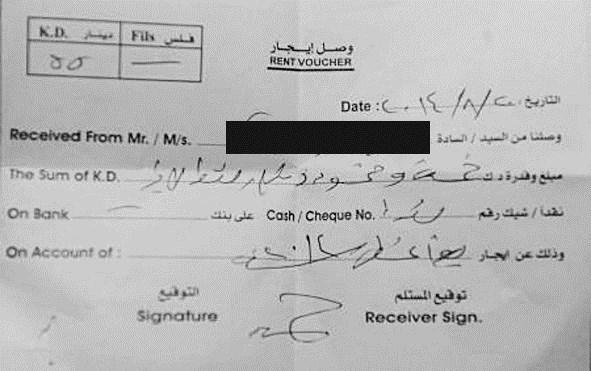 K.D. دينار Fils فلس
٥٥ —
وصل إيجار
RENT VOUCHER
Date : ٢٠١٤/٨/٢٠ التاريخ :
Received From Mr. / M/s. وصلنا من السيد / السادة
The Sum of K.D. خمسة وخمسون دينار فقط لا غير مبلغ وقدرة د.ك
On Bank — على بنك Cash / Cheque No. نقداً / شيك رقم
On Account of : وذلك عن ايجار
التوقيع توقيع المستلم
Signature Receiver Sign.